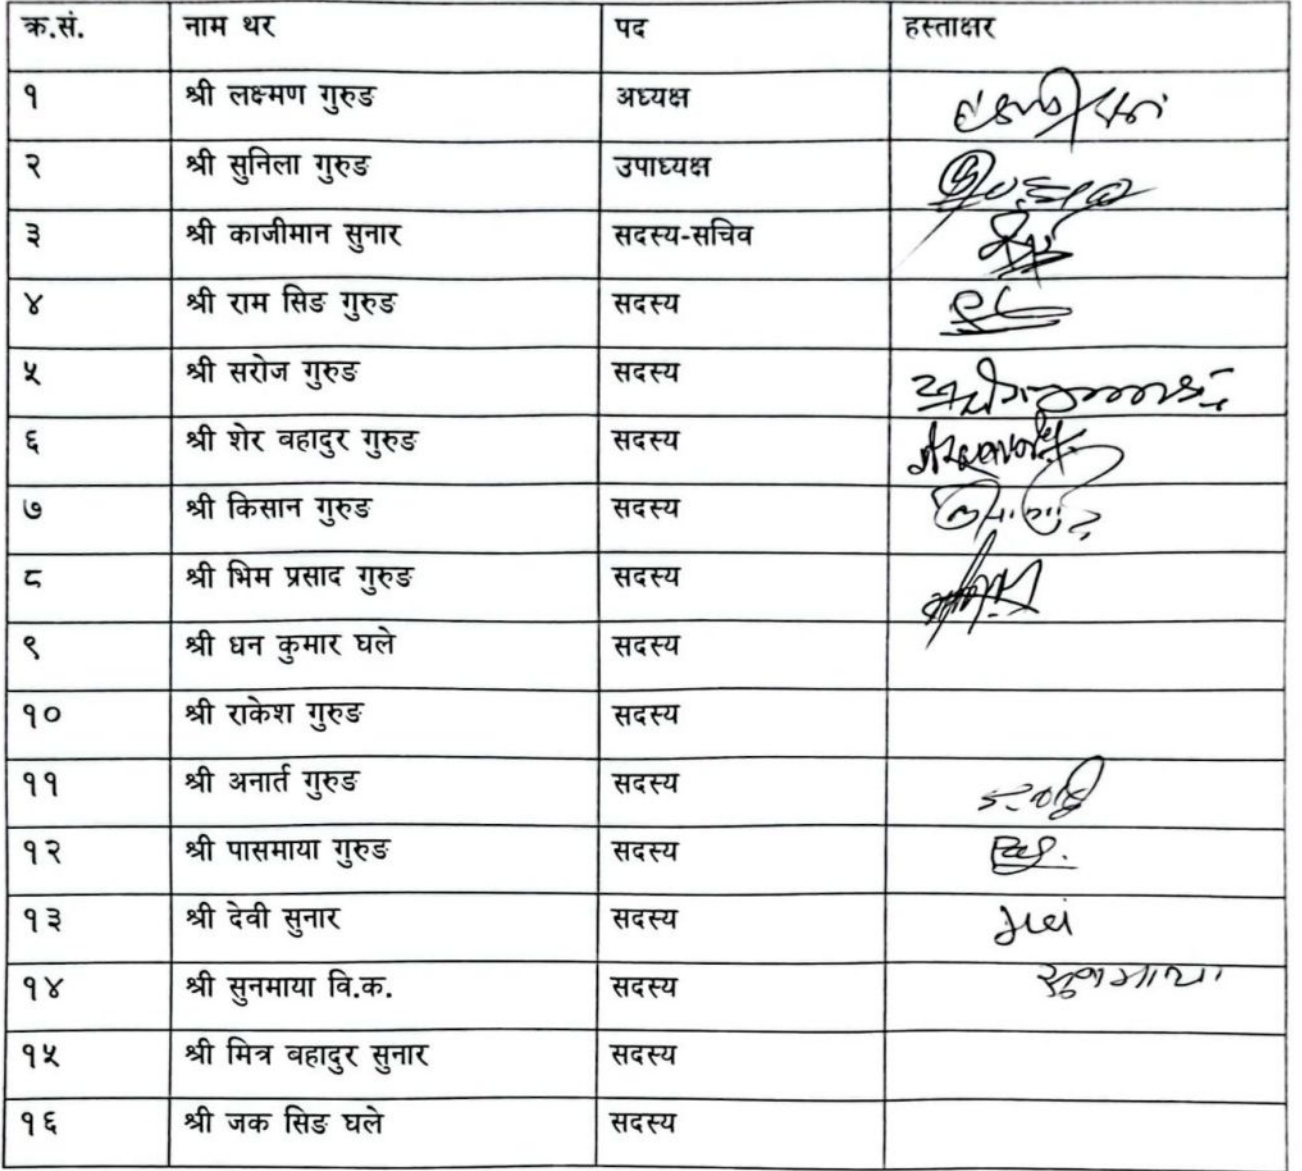 क्र.सं. नाम थर पद हस्ताक्षर
१ श्री लक्ष्मण गुरुङ अध्यक्ष
२ श्री सुनिला गुरुङ उपाध्यक्ष
३ श्री काजीमान सुनार सदस्य-सचिव
४ श्री राम सिङ गुरुङ सदस्य
५ श्री सरोज गुरुङ सदस्य
६ श्री शेर बहादुर गुरुङ सदस्य
७ श्री किसान गुरुङ सदस्य
८ श्री भिम प्रसाद गुरुङ सदस्य
९ श्री धन कुमार घले सदस्य
१० श्री राकेश गुरुङ सदस्य
११ श्री अनार्त गुरुङ सदस्य
१२ श्री पासमाया गुरुङ सदस्य
१३ श्री देवी सुनार सदस्य
१४ श्री सुनमाया वि.क. सदस्य सुनमाया
१५ श्री मित्र बहादुर सुनार सदस्य
१६ श्री जक सिङ घले सदस्य